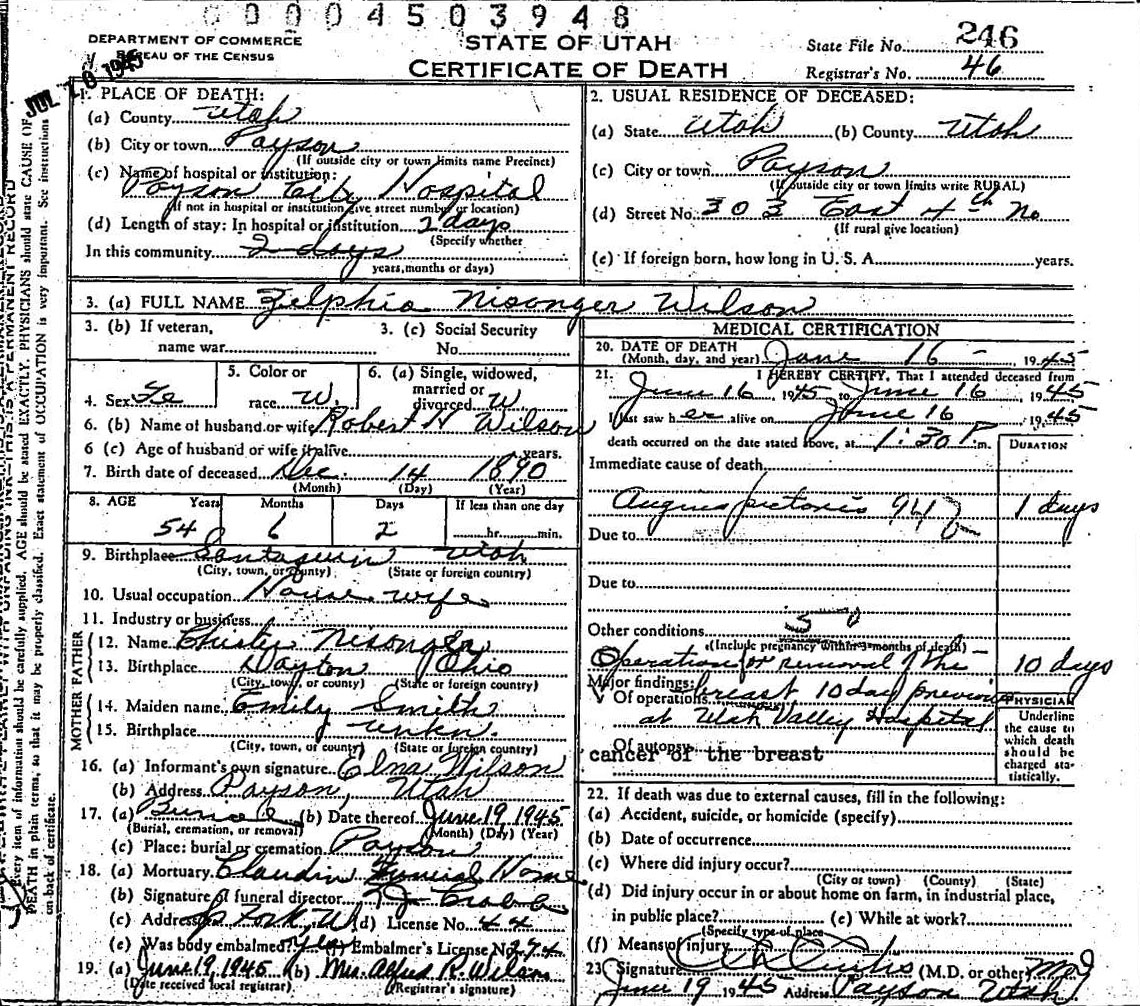 00004503948
DEPARTMENT OF COMMERCE
BUREAU OF THE CENSUS
STATE OF UTAH
CERTIFICATE OF DEATH
State File No. 246
Registrar's No. 46
JUL 10 1945
1. PLACE OF DEATH:
(a) County Utah
(b) City or town Payson
(If outside city or town limits name Precinct)
(c) Name of hospital or institution:
Payson City Hospital
(If not in hospital or institution give street number or location)
(d) Length of stay: In hospital or institution 2 days
(Specify whether
In this community 2 days
years, months or days)
2. USUAL RESIDENCE OF DECEASED:
(a) State Utah (b) County Utah
(c) City or town Payson
(If outside city or town limits write RURAL)
(d) Street No. 303 East 4th No
(If rural give location)
(e) If foreign born, how long in U. S. A. years.
3. (a) FULL NAME Zelphia Nisonger Wilson
3. (b) If veteran,
name war
3. (c) Social Security
No.
4. Sex Fe
5. Color or
race W.
6. (a) Single, widowed,
married or
divorced W
6. (b) Name of husband or wife Robert H Wilson
6 (c) Age of husband or wife if alive years.
7. Birth date of deceased Dec. 14 1890
(Month) (Day) (Year)
8. AGE Years Months Days If less than one day
54 6 2 hr. min.
9. Birthplace Santaquin Utah
(City, town, or county) (State or foreign country)
10. Usual occupation House wife
11. Industry or business
FATHER
12. Name Nisonger
13. Birthplace Dayton Ohio
(City, town, or county) (State or foreign country)
MOTHER
14. Maiden name Emily Smith
15. Birthplace unkn.
(City, town, or county) (State or foreign country)
16. (a) Informant's own signature Elna Wilson
(b) Address Payson, Utah
17. (a) Burial (b) Date thereof June 19, 1945
(Burial, cremation, or removal) (Month) (Day) (Year)
(c) Place: burial or cremation Payson
18. (a) Mortuary Claudin Funeral Home
(b) Signature of funeral director
(c) Address (d) License No. 44
(e) Was body embalmed? Yes Embalmer's License No. 274
19. (a) June 19, 1945 (b) Mrs. Alfred R. Wilson
(Date received local registrar) Registrar's signature)
MEDICAL CERTIFICATION
20. DATE OF DEATH
(Month, day, and year) June 16 - , 1945
21. I HEREBY CERTIFY, That I attended deceased from
June 16 1945 to June 16 1945
I last saw her alive on June 16 1945
death occurred on the date stated above, at 1:30 P. m.
DURATION
Immediate cause of death
pictoris 94 1 days
Due to
Due to
50
Other conditions
(Include pregnancy within 3 months of death)
Operation for removal of the - 10 days
Major findings:
Of operations breast 10 day previous
at Utah Valley Hospital
Of autopsy
cancer of the breast
PHYSICIAN
Underline
the cause to
which death
should be
charged sta-
tistically.
22. If death was due to external causes, fill in the following:
(a) Accident, suicide, or homicide (specify)
(b) Date of occurrence
(c) Where did injury occur?
(City or town) (County) (State)
(d) Did injury occur in or about home on farm, in industrial place,
in public place? (e) While at work?
(Specify type of place
(f) Means of injury
23. Signature Curtis (M.D. or other) MD
June 19 1945 Address Payson Utah
Every item of information should be carefully supplied. AGE should be stated EXACTLY. PHYSICIANS should state CAUSE OF
DEATH in plain terms, so that it may be properly classified. Exact statement of OCCUPATION is very important. See instructions
on back of certificate.